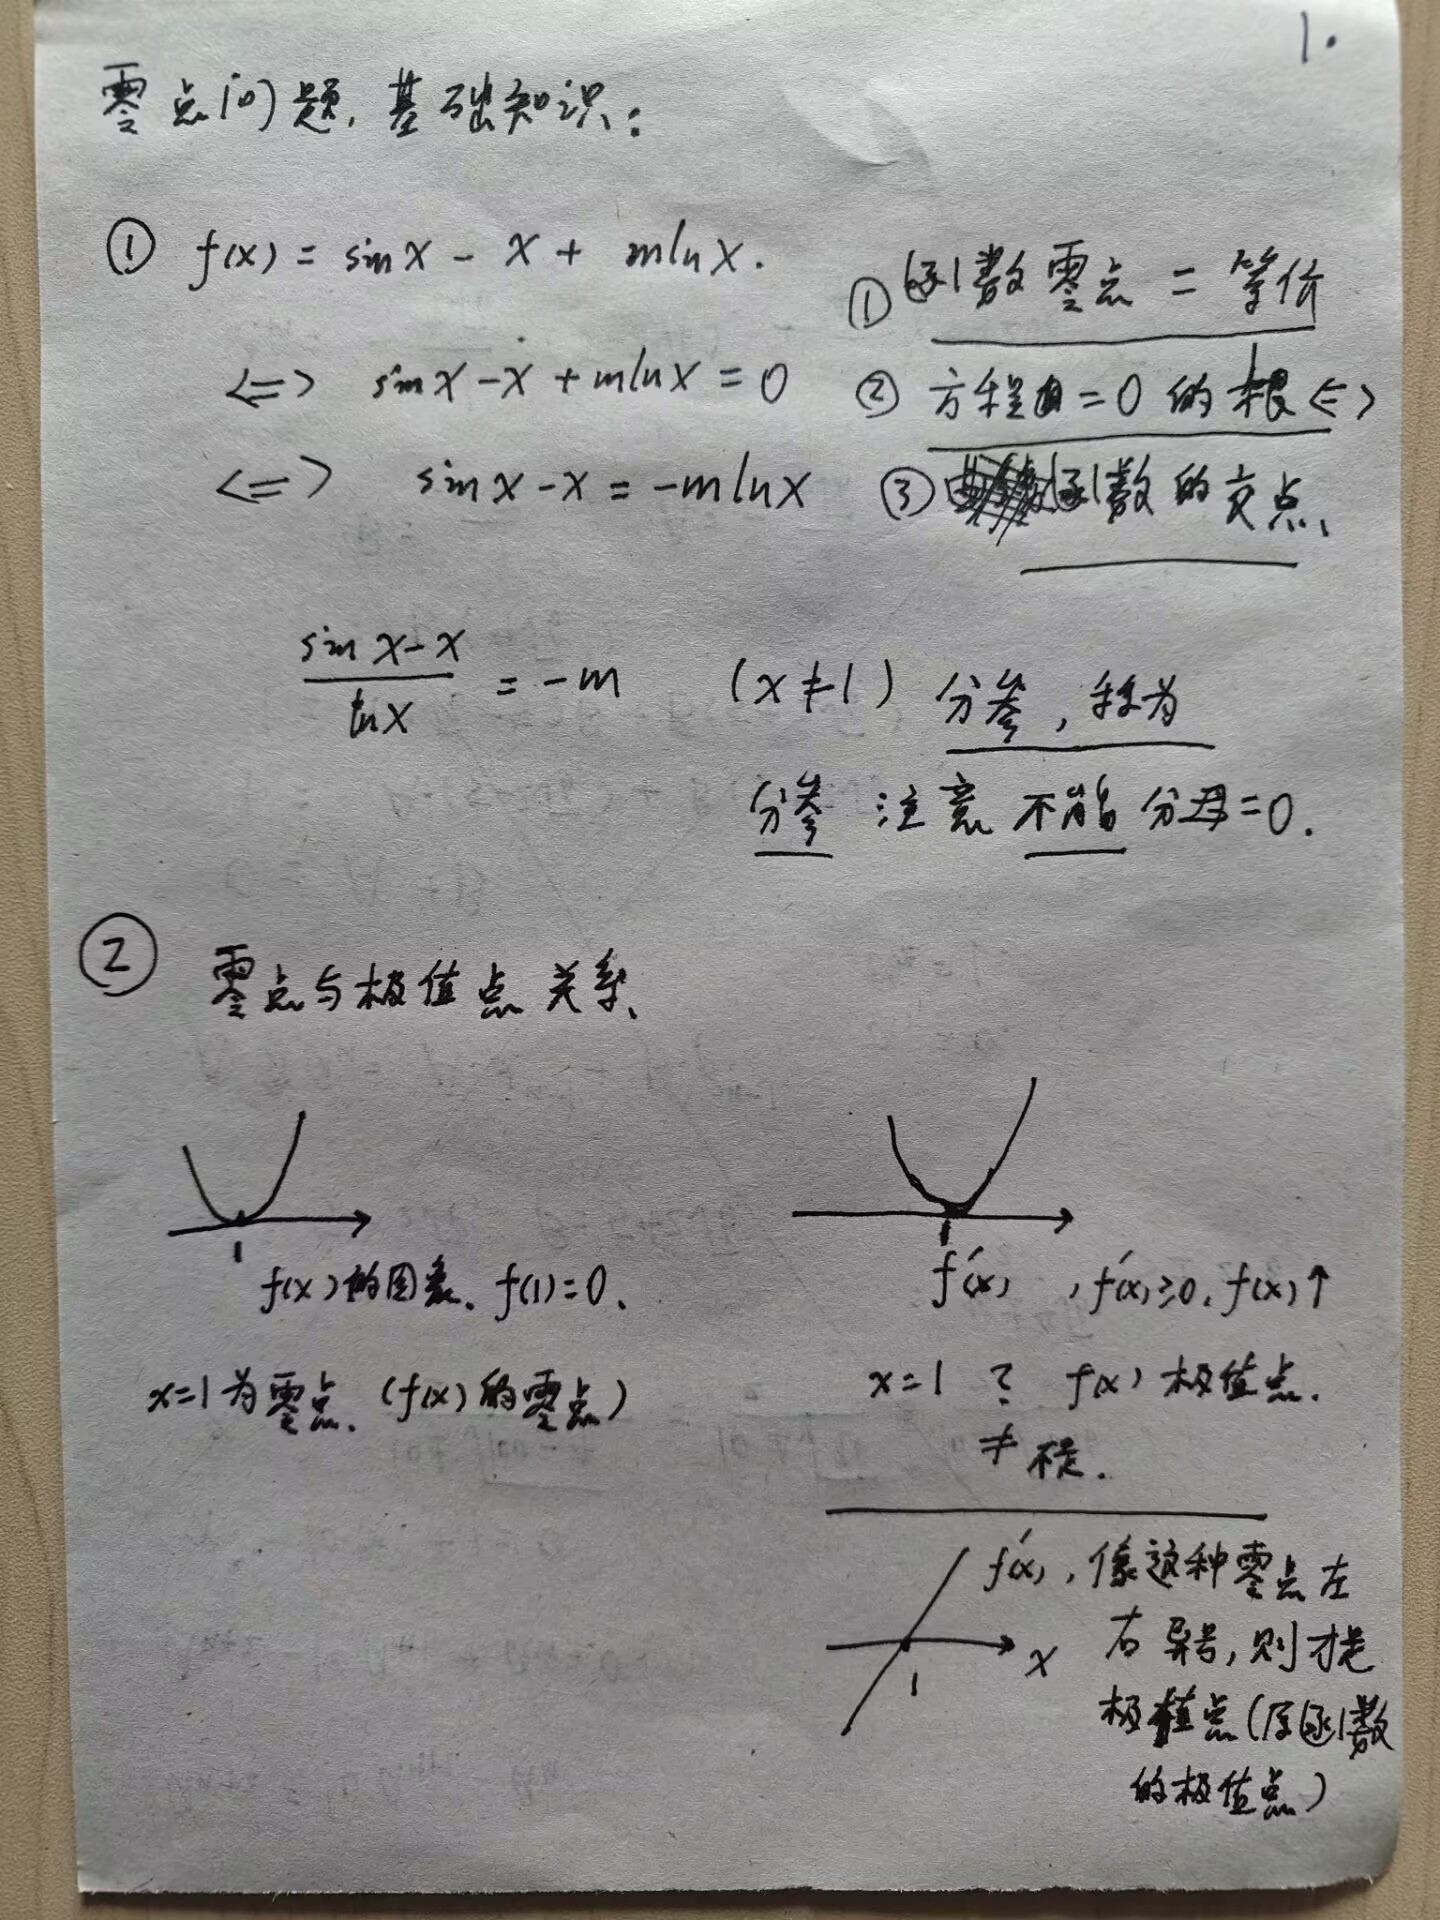 1.
零点问题,基础知识:
① f(x) = sinx - x + mlnx.
① 函数零点 = 等价
<=> sinx - x + mlnx = 0
② 方程=0 的根 <=>
<=> sinx - x = -mlnx
③ 函数的交点、
sinx-x
―――― = -m (x≠1) 分参,称为
lnx
分参 注意 不能 分母=0.
② 零点与极值点关系、
1
1
f(x)的图象、f(1)=0、
f'(x) , f'(x)≥0, f(x)↑
x=1为零点、(f(x)的零点)
x=1 ? f(x)极值点.
≠ 不是.
f'(x), 像这种零点左
x 右异号,则才是
1
极值点(原函数
的极值点)